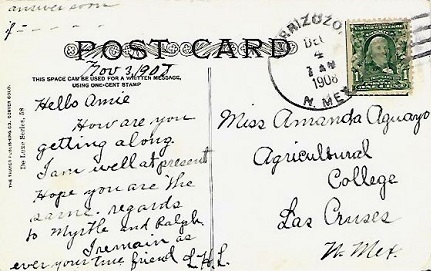 answer soon
if
POST CARD
Nov 3, 1907
THIS SPACE CAN BE USED FOR A WRITTEN MESSAGE,
USING ONE-CENT STAMP
Hello Amie
How are you
getting along.
I am well at present
Hope you are the
same. regards
to Myrtle and Ralph.
I remain as
ever your true friend L. H. L.
De Luxe Series, 58
RRIZOZO
DEC
4
AM
1908
N. MEX
1
Miss Amanda Aguayo
Agricultural
College
Las Cruses
N. Mex.